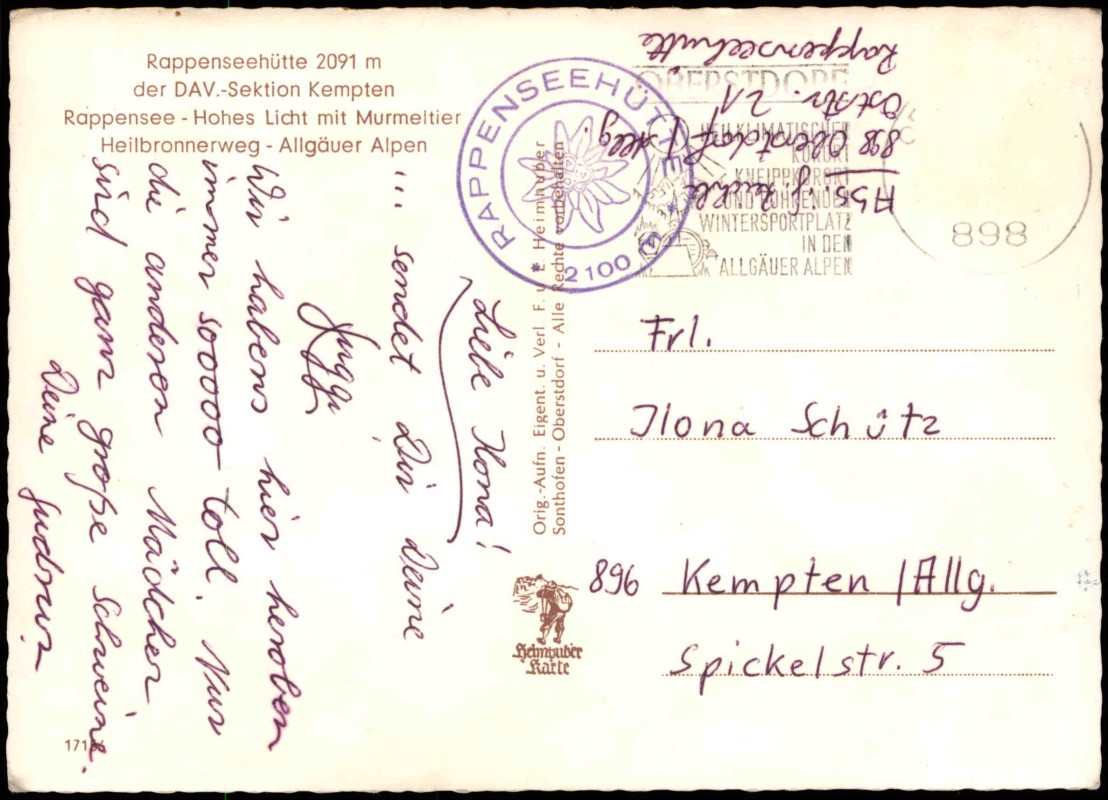 Rappenseehütte 2091 m
der DAV.-Sektion Kempten
Rappensee - Hohes Licht mit Murmeltier
Heilbronnerweg - Allgäuer Alpen
Liebe Ilona!
... sendet Dir Deine
Wir habens hier heroben
immer sooooo toll. Nur
die anderen Mädchen
sind ganz große Schweine.
Deine Gudrun
1715
Orig.-Aufn. Eigent. u. Verl. F. u. E. Heimhuber
Sonthofen - Oberstdorf - Alle Rechte vorbehalten
Heimhuber
Karte
RAPPENSEEHÜTTE
* 2100 *
OBERSTDORF
HEILKLIMATISCHER
KURORT
KNEIPPKURORT
UND FÜHRENDER
WINTERSPORTPLATZ
IN DEN
ALLGÄUER ALPEN
898
898 Oberstdorf / Allg.
Oststr. 21
Rappenseehütte
Frl.
Ilona Schütz
896 Kempten / Allg.
Spickelstr. 5